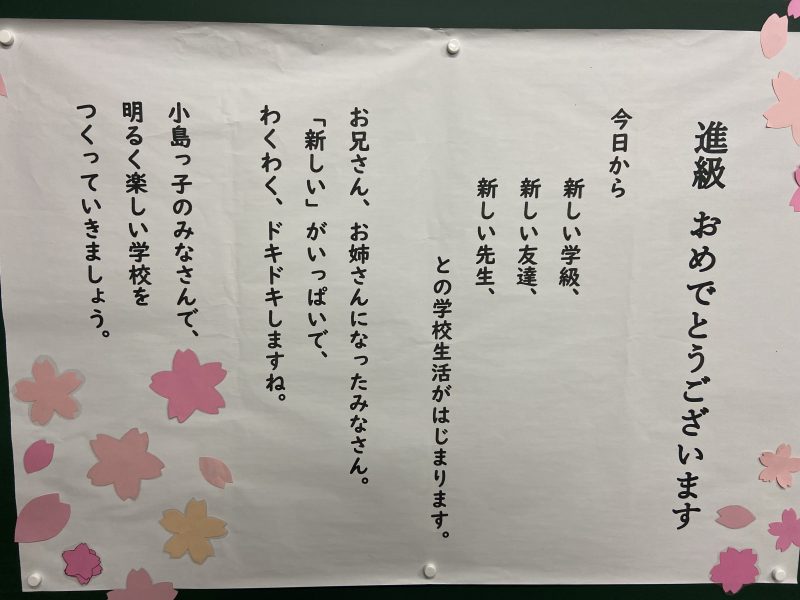 進級 おめでとうございます
今日から
新しい学級、
新しい友達、
新しい先生、
との学校生活がはじまります。
お兄さん、お姉さんになったみなさん。
「新しい」がいっぱいで、
わくわく、ドキドキしますね。
小島っ子のみなさんで、
明るく楽しい学校を
つくっていきましょう。